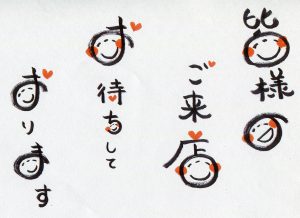 皆様の
ご来店
お待ちして
おります